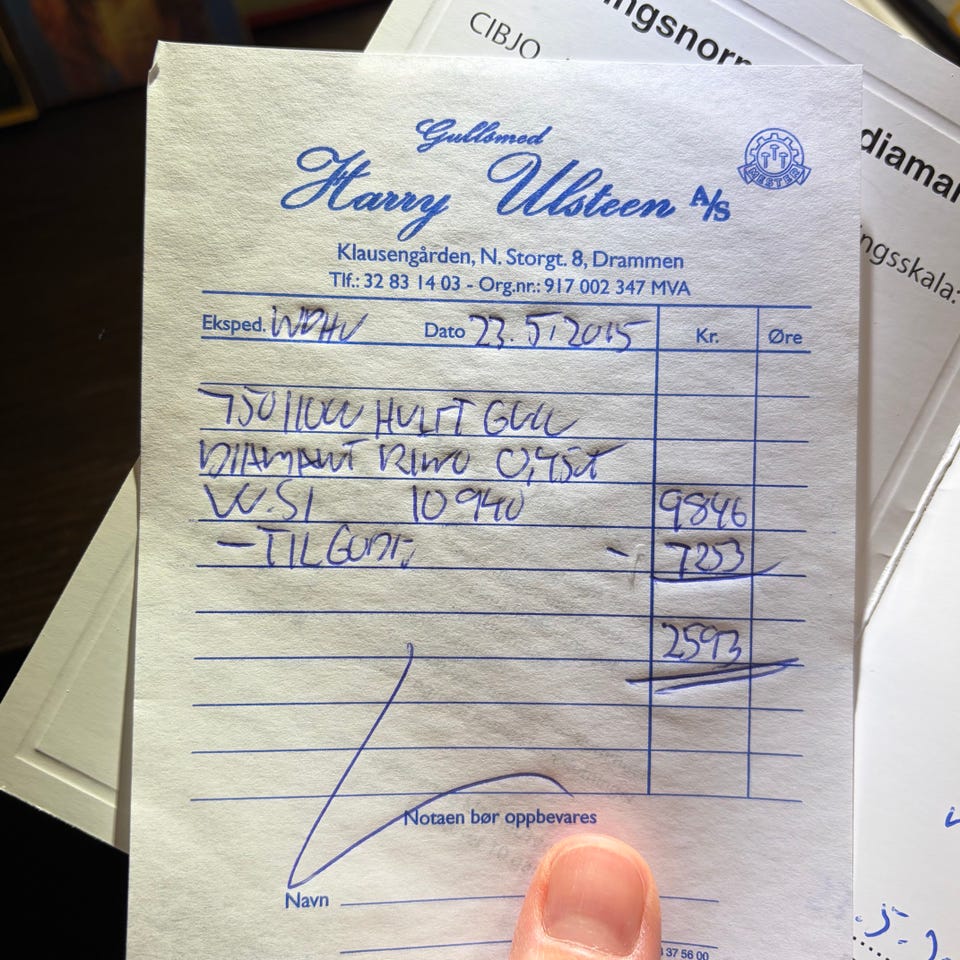 ingsnorm
CIBJO
diaman
ingsskala:
Gullsmed
Harry Ulsteen A/S
MESTER
Klausengården, N. Storgt. 8, Drammen
Tlf.: 32 83 14 03 - Org.nr.: 917 002 347 MVA
Eksped. Dato 23.5.2015 Kr. Øre
750/1000 HVITT GULL
DIAMANT RING 0,45ct
W.SI 10 940 9846
- TILGODE - 7253
2593
Notaen bør oppbevares
Navn
37 56 00